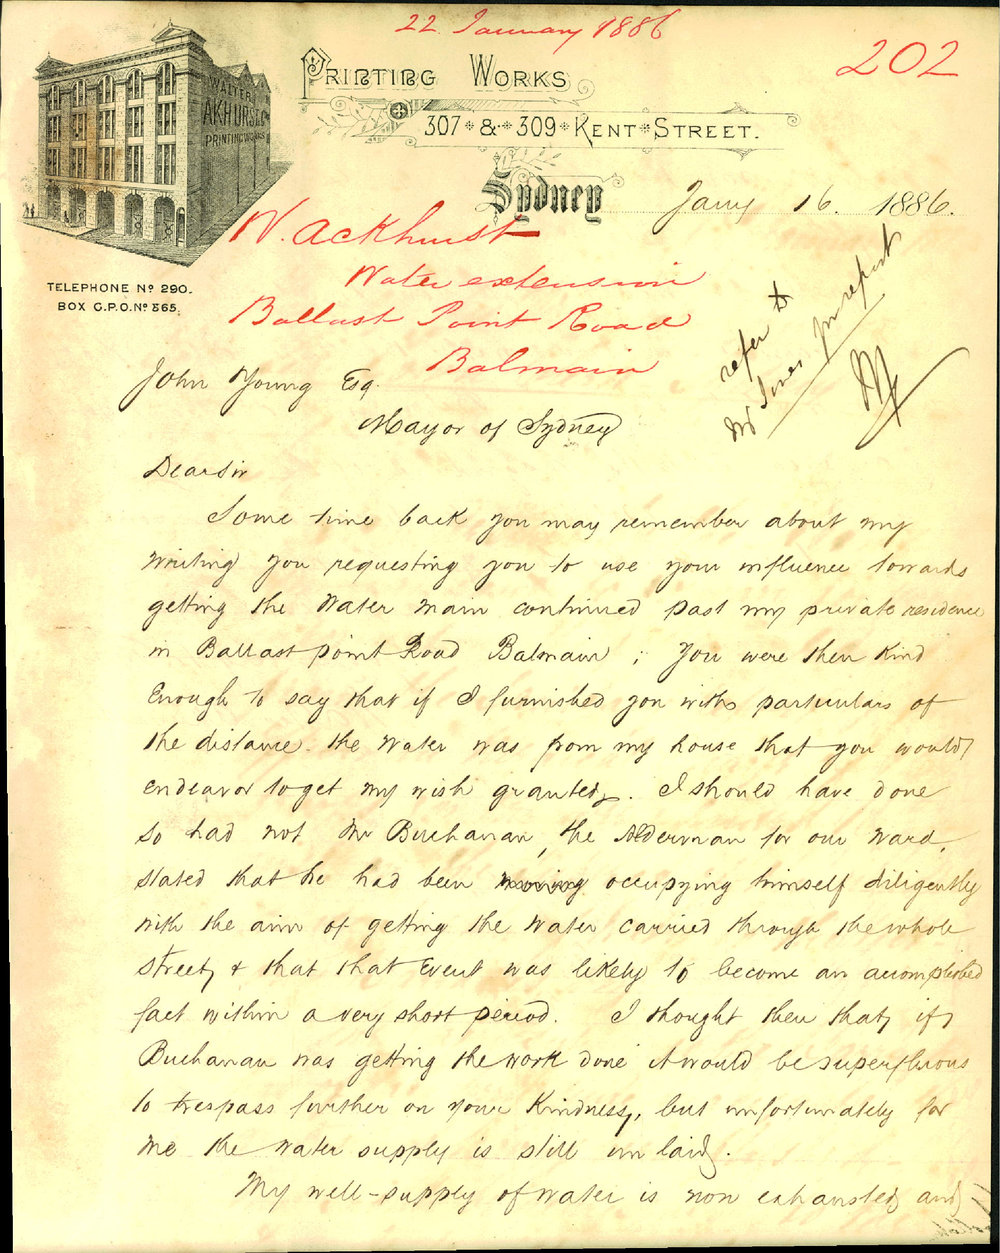 22 January 1886
202
PRINTING WORKS
307 & 309 KENT STREET.
Sydney
Jany 16. 1886.
WALTER
AKHURST & Co
PRINTING WORKS
TELEPHONE No 290.
BOX G.P.O. No 565.
W. Ackhurst
Water extension
Ballast Point Road
Balmain
refer to
Mr Jones for report
John Young Esq.
Mayor of Sydney
Dear Sir
Some time back you may remember about my
writing you requesting you to use your influence towards
getting the Water main continued past my private residence
in Ballast point Road Balmain ; You were then kind
Enough to say that if I furnished you with particulars of
the distance the water was from my house that you would
endeavor to get my wish granted. I should have done
so had not Mr Buchanan, the Alderman for our ward,
stated that he had been occupying himself diligently
with the aim of getting the water carried through the whole
street, & that that Event was likely to become an accomplished
fact within a very short period. I thought then that, if
Buchanan was getting the work done it would be superfluous
to trespass further on your kindness, but unfortunately for
me the water supply is still un laid.
My well-supply of water is now exhausted, and